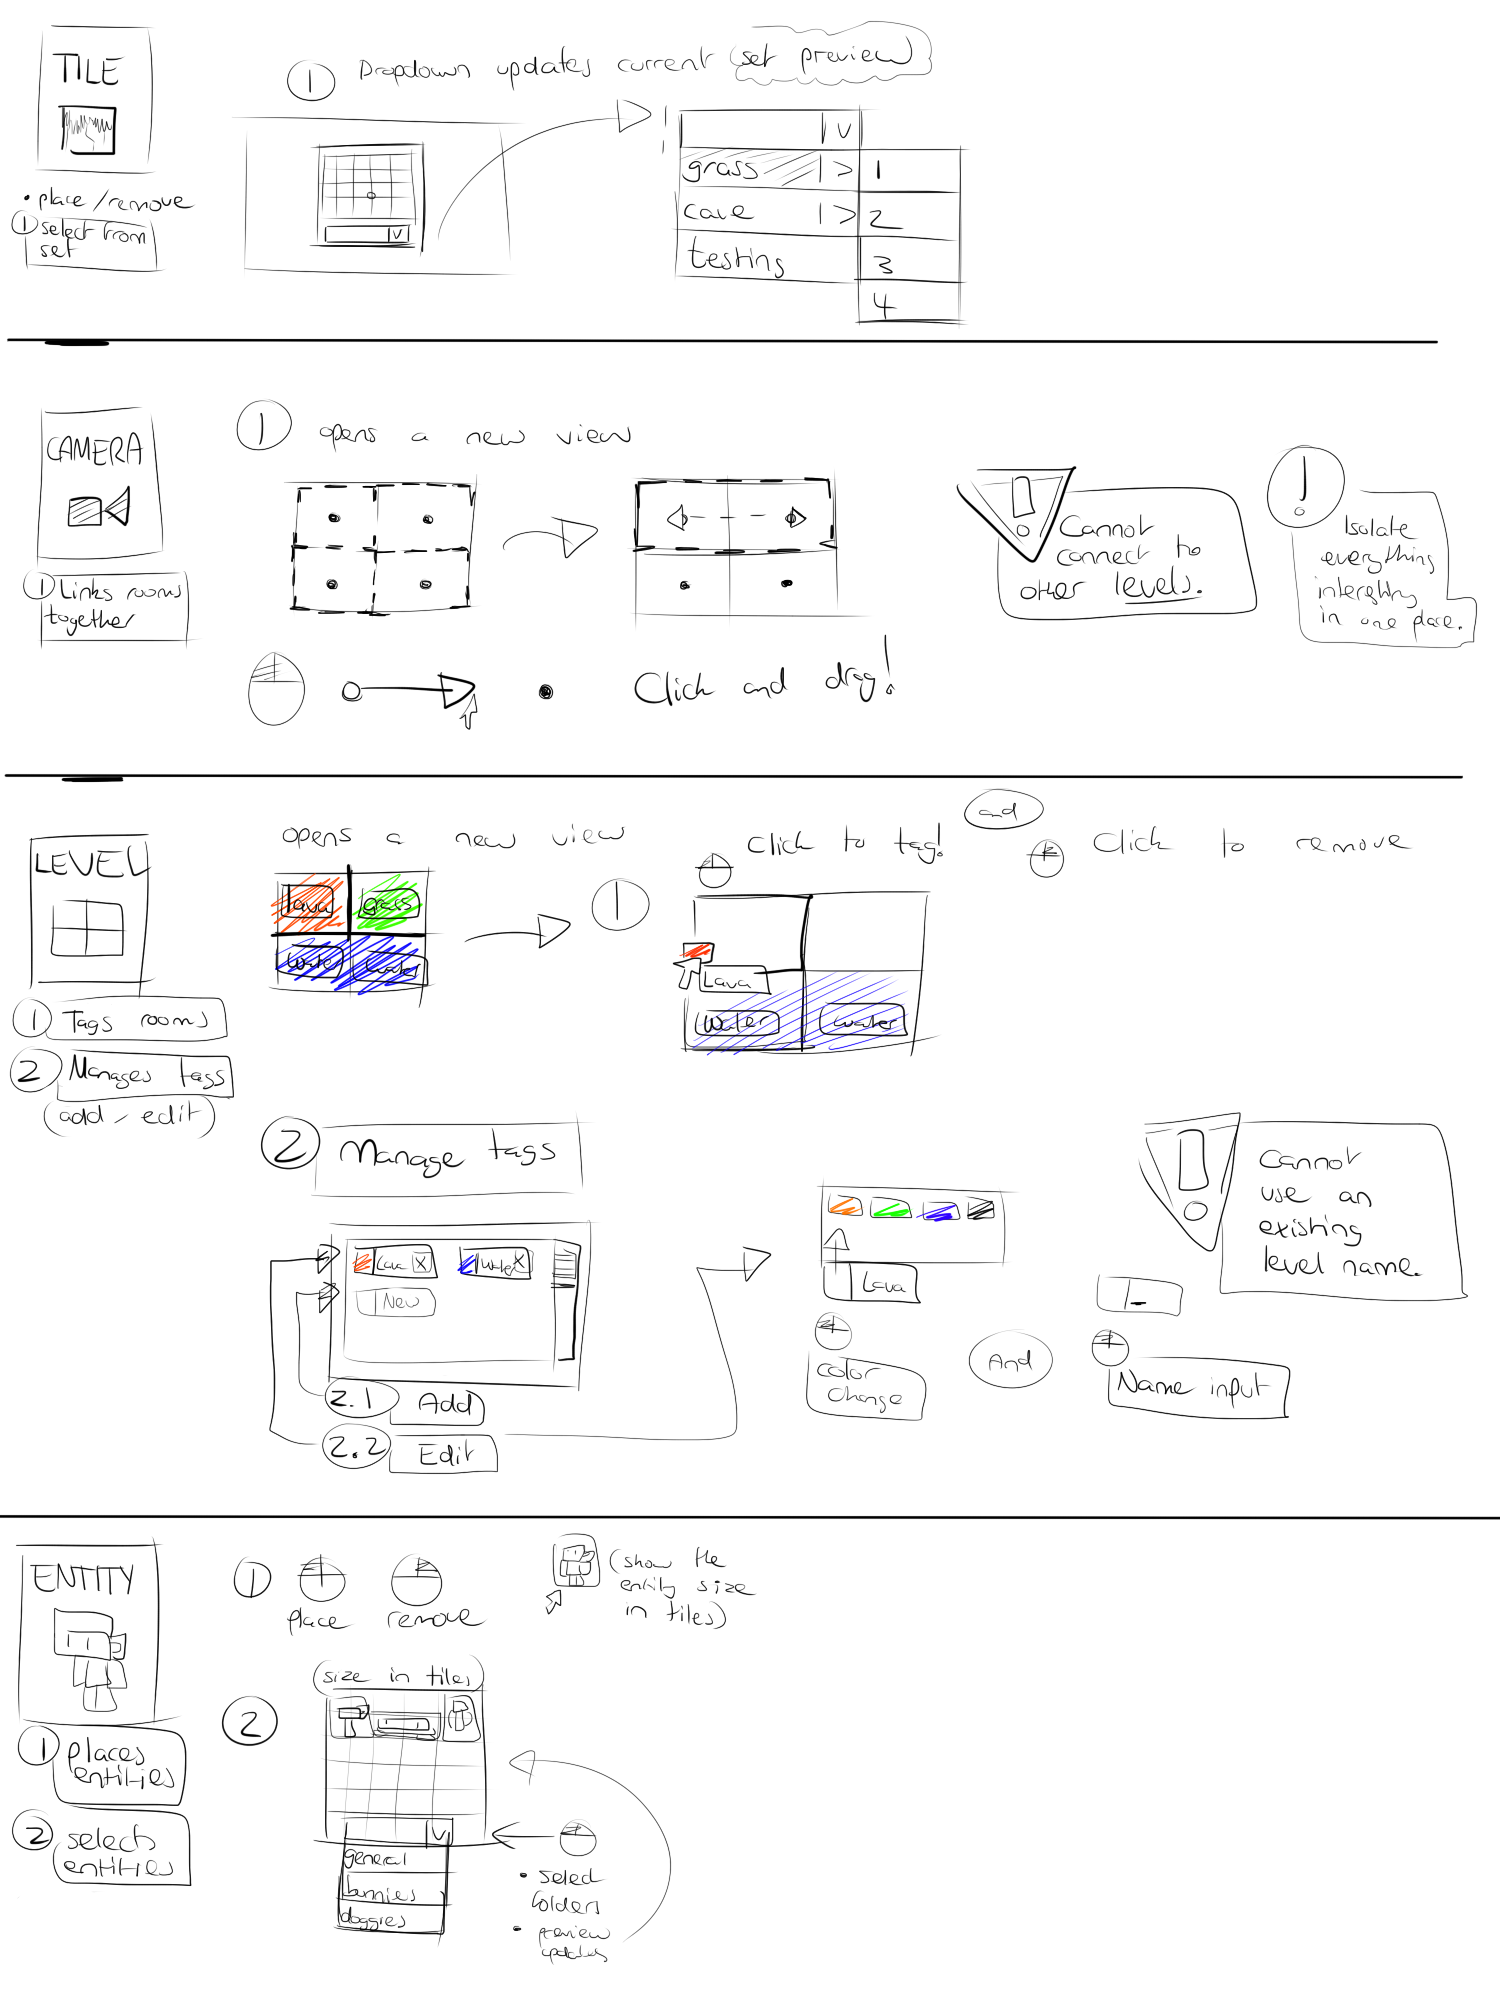 TILE
• place / remove
1 select from
set
1 Dropdown updates current (set preview)
V
V
grass >
cave >
testing
1
2
3
4
CAMERA
1 Links rooms
together
1 opens a new view
Click and drag!
!
Cannot
connect to
other levels.
!
Isolate
everything
in one place.
LEVEL
1 Tags rooms
2 Manages tags
(add / edit)
opens a new view
lava
grass
water
water
1
Click to tag!
and
Click to remove
Lava
Water
water
2 Manage tags
Lava X
Water X
New
2.1 Add
2.2 Edit
Lava
color
change
And
Name input
!
Cannot
use an
existing
level name.
ENTITY
1 places
entities
2 selects
entities
1
place
remove
(show the
entity size
in tiles)
2
(size in tiles)
V
general
bunnies
doggies
• select
folders
• preview
updates